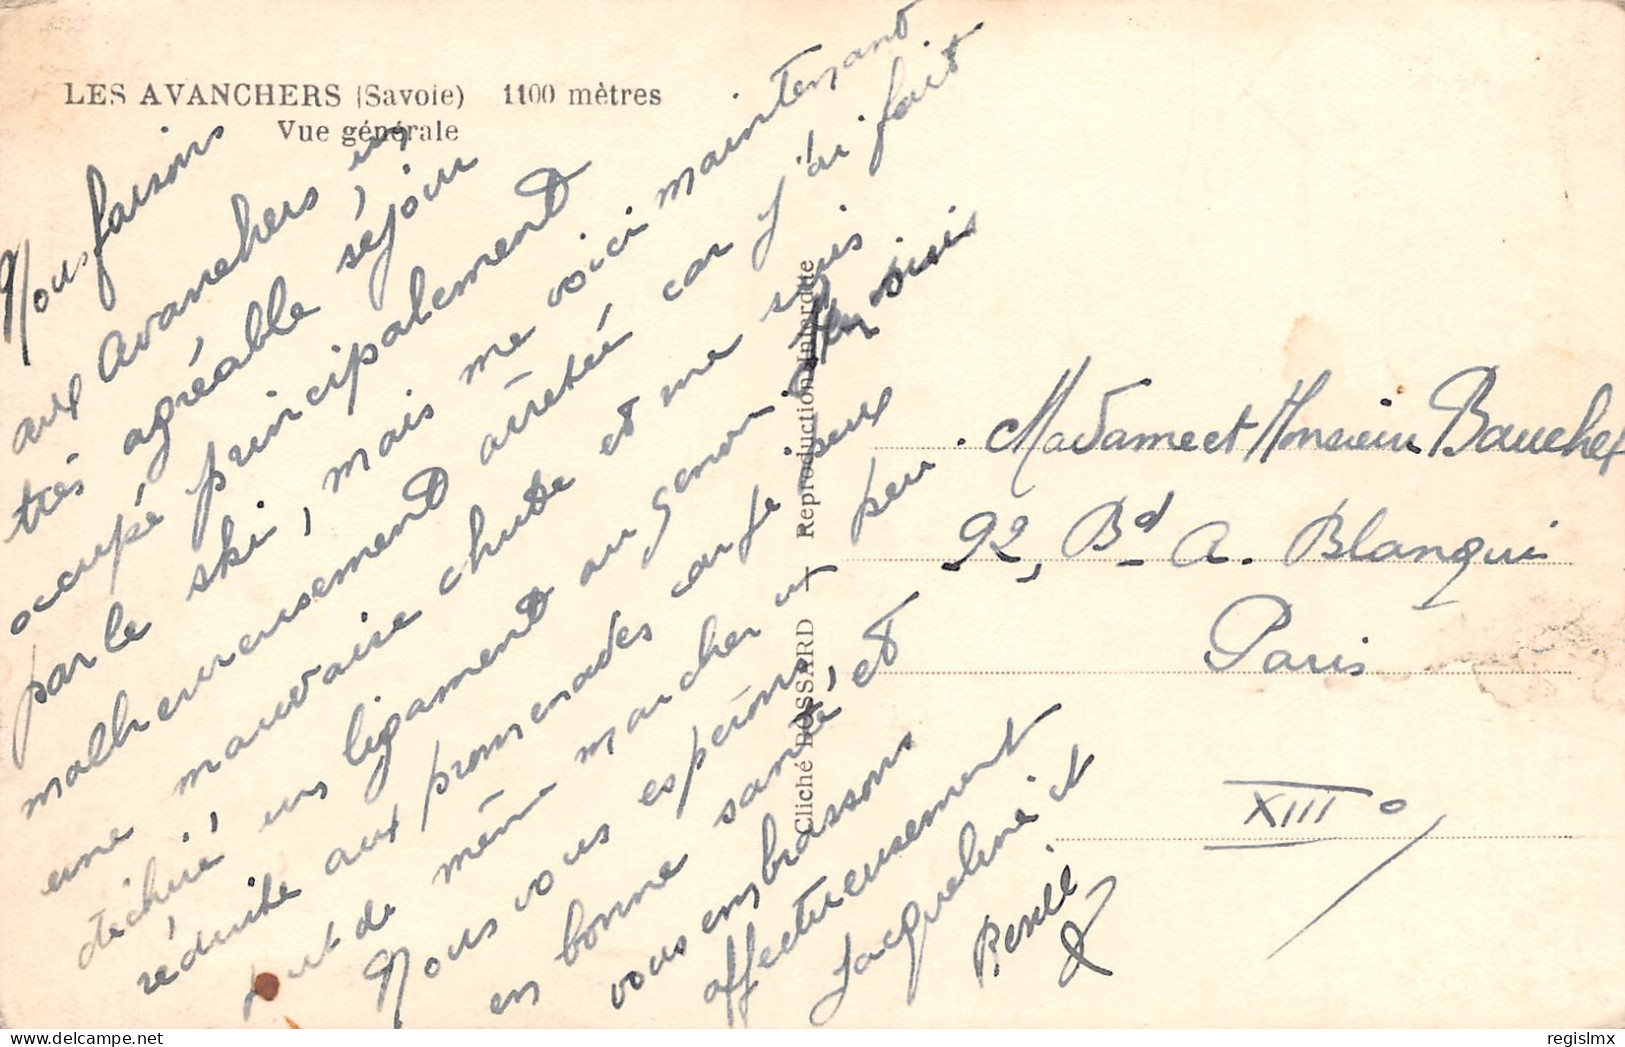 LES AVANCHERS (Savoie) 1100 mètres
Vue générale
Nous faisons
aux Avanchers un
très agréable séjour
occupé principalement
par le ski, mais me voici maintenant
malheureusement arrêtée car j'ai fait
une mauvaise chute et me suis
déchiré un ligament au genou
réduite aux promenades car je peux
tout de même marcher un peu.
Nous vous espérons
en bonne santé, et
vous embrassons
affectueusement
Jacqueline et
Cliché BOSSARD - Reproduction Interdite
Madame et Monsieur Bauchet
92, Bd A. Blanqui
Paris
XIII°
regislmx